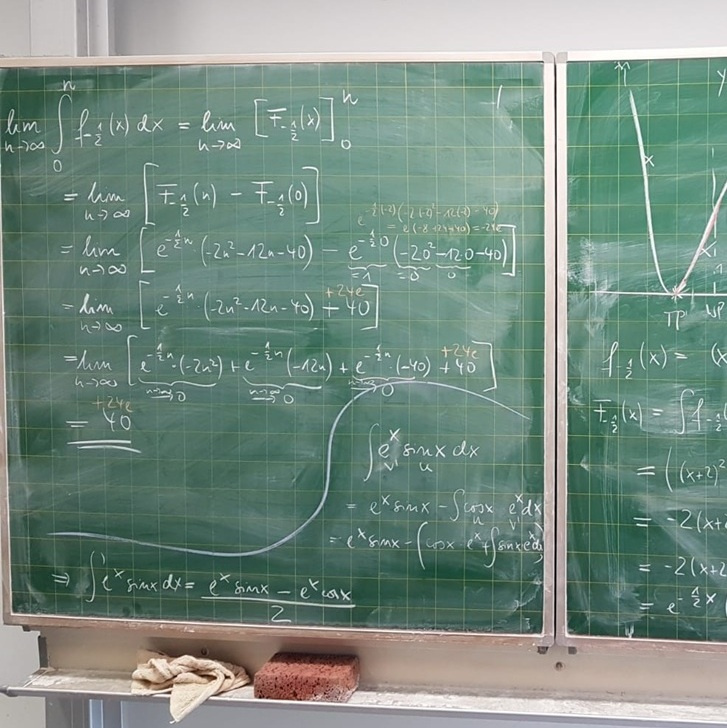 lim n→∞ ∫₀ⁿ f_{-1/2}(x) dx = lim n→∞ [F_{-1/2}(x)]₀ⁿ
= lim n→∞ [F_{-1/2}(n) - F_{-1/2}(0)]
e^{-1/2(-2)}(-2(-2)²-12(-2)-40)
= e(-8+24-40) = -24e
= lim n→∞ [e^{-1/2 n}·(-2n²-12n-40) - e^{-1/2·0}(-2·0²-12·0-40)]
=1 =0 0
+24e
= lim n→∞ [e^{-1/2 n}·(-2n²-12n-40) + 40]
+24e
= lim n→∞ [e^{-1/2 n}·(-2n²) + e^{-1/2 n}(-12n) + e^{-1/2 n}·(-40) + 40]
n→∞ → 0 n→∞ → 0 n→∞ → 0
+24e
= 40
∫ e^x sin x dx
v' u
= e^x sin x - ∫ cos x e^x dx
u v'
= e^x sin x - (cos x e^x + ∫ sin x e^x dx)
⇒ ∫ e^x sin x dx = (e^x sin x - e^x cos x)/2
x
TP
f_{-1/2}(x) = (x
F_{-1/2}(x) = ∫ f_{-1/2}
= ((x+2)²
= -2(x+
= -2(x+2
= e^{-1/2 x}